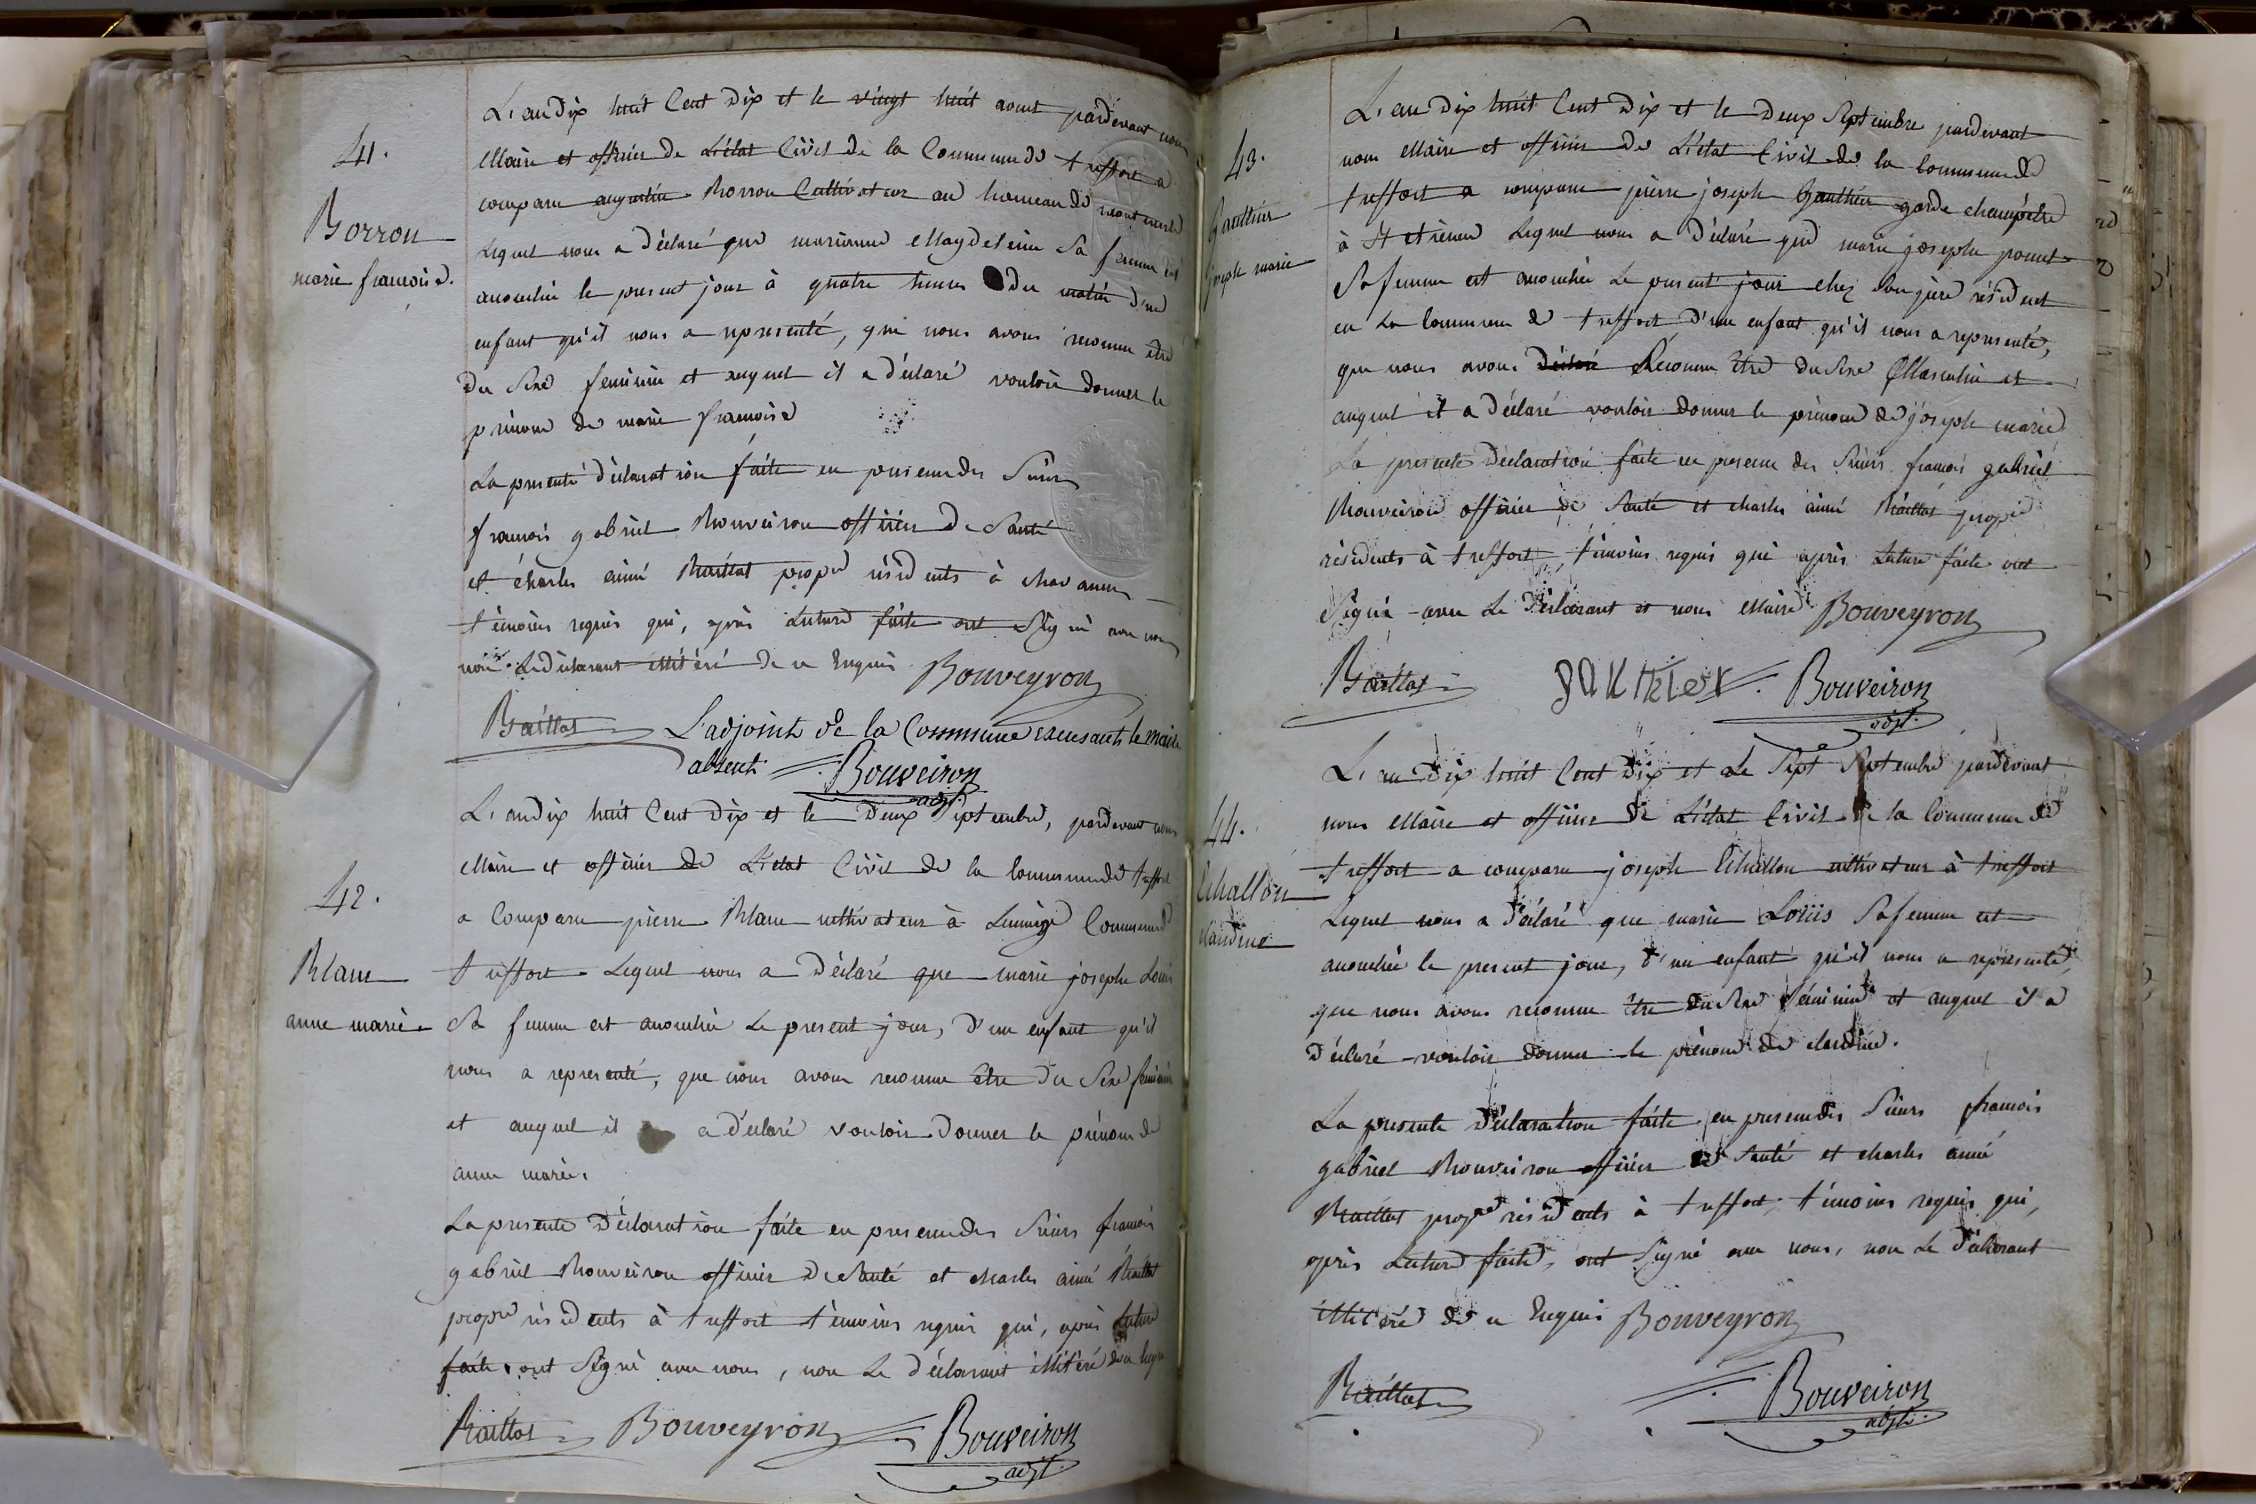 41.
Borron
marie françoise.
L'an dix huit Cent Dix et le vingt huit aout pardevant nous
Maire et officier de L'état Civil de la Commune de treffort a
comparu augustin Borron Cultivateur au hameau de
Lequel nous a déclaré que marianne Magdeleine Sa femme est
accouchée le present jour à quatre heures du matin d'un
enfant qu'il nous a representé, que nous avons reconnu être
du Sexe feminin et auquel il a déclaré vouloir donner le
prénom de marie françoise
La presente déclaration faite en presence des Sieurs
françois gabriel Bouveiron officier de Santé
et charles aimé Baillat propre résidents à chavannes
témoins requis qui, après Lecture faite ont Signé avec nous
non Le déclarant illitéré de ce Enquis Bouveyron
Baillat L'adjoint de la Commune exerçant le maire
absent Bouveiron
adjt.
42.
Blanc
anne marie.
L'an dix huit Cent Dix et le Deux Septembre, pardevant nous
Maire et officier de L'etat Civil de la Commune de treffort
a Comparu pierre Blanc cultivateur à Commune de
treffort Lequel nous a Déclaré que marie joseph Louis
Sa femme est accouchée Le present jour, D'un enfant qu'il
nous a representé, que nous avons reconnu être du Sexe feminin
et auquel il a déclaré vouloir Donner le prénom de
anne marie.
La presente Déclaration faite en presence des Sieurs françois
gabriel Bouveiron officier de Santé et charles aimé Baillat
propre résidents à treffort témoins requis qui, après Lecture
faite, ont Signé avec nous, non Le déclarant illitéré de ce Enquis
Baillat Bouveyron Bouveiron
adjt.
43.
Gauthier
joseph marie
L'an dix huit Cent Dix et le Deux Septembre pardevant
nous Maire et officier de L'état Civil de la Commune de
treffort a comparu pierre joseph Gauthier garde champêtre
à St etienne Lequel nous a Déclaré que marie josephe
Sa femme est accouchée Le present jour chez Son père résident
en La Commune de treffort D'un enfant qu'il nous a representé,
que nous avons déclaré Reconnu être du Sexe Masculin et
auquel il a Déclaré vouloir donner le prénom de joseph marie
La presente Déclaration faite en presence des Sieurs françois gabriel
Bouveiron officier de Santé et charles aimé Baillat propre
résidents à treffort, témoins requis qui après Lecture faite ont
Signé avec Le Déclarant et nous Maire Bouveyron
Baillat gautier Bouveiron
adjt.
44.
Echallon
claudine
L'an Dix huit Cent Dix et Le Sept Septembre pardevant
nous Maire et officier de L'état Civil de la Commune de
treffort a comparu joseph Echallon cultivateur à treffort
Lequel nous a déclaré que marie Louis Sa femme est
accouchée le present jour, d'un enfant qu'il nous a représenté,
que nous avons reconnu être du Sexe féminin et auquel il a
Déclaré vouloir donner le prénom de claudine.
La presente Déclaration faite en presence des Sieurs françois
gabriel Bouveiron officier de Santé et charles aimé
Baillat propre résidents à treffort témoins requis qui,
après Lecture faite, ont Signé avec nous, non Le déclarant
illitéré de ce Enquis Bouveyron
Baillat Bouveiron
adjt.